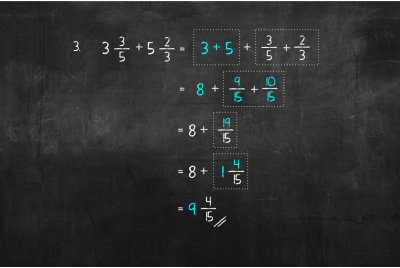 3. 3 3/5 + 5 2/3 = 3 + 5 + 3/5 + 2/3
= 8 + 9/15 + 10/15
= 8 + 19/15
= 8 + 1 4/15
= 9 4/15 //